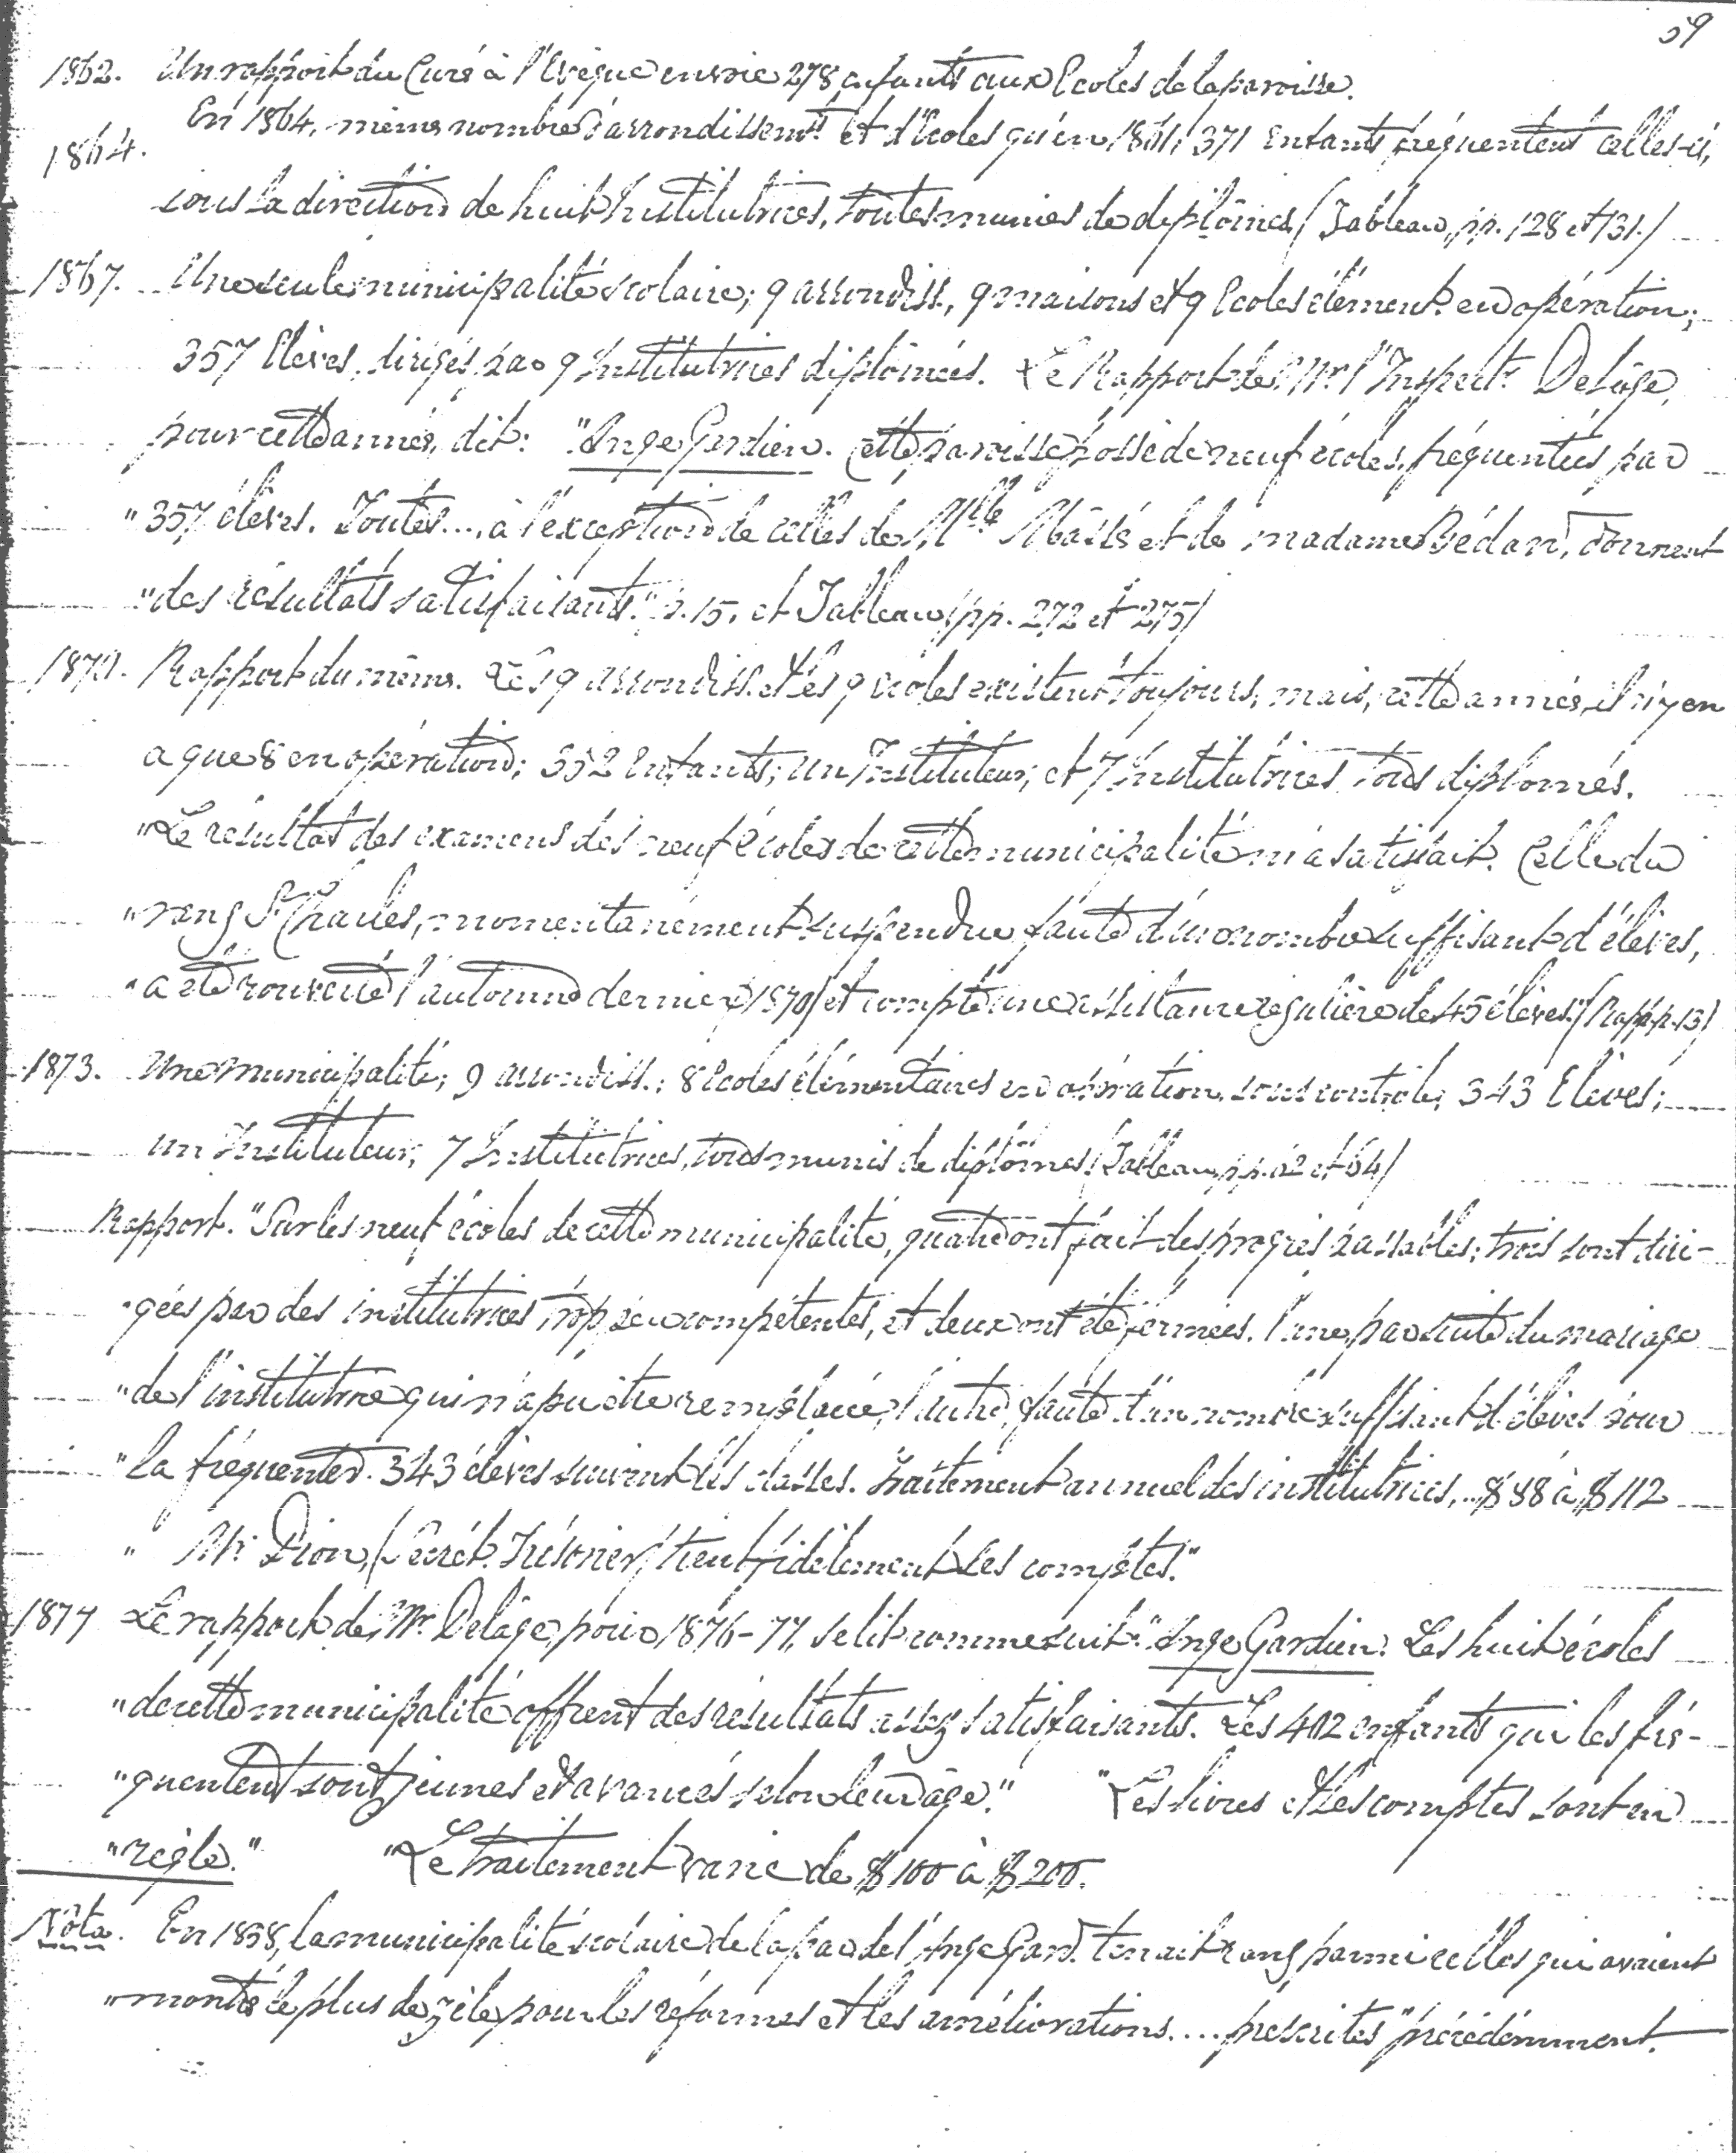 59
1862. Un rapport du Curé à l'Evêque envoie 278 enfants aux Ecoles de la paroisse.
1864. En 1864, même nombre d'arrondissemts et d'Ecoles qu'en 1861; 371 Enfants fréquentent celles-ci,
sous la direction de huit Institutrices, toutes munies de diplômes. (Tableau, pp. 128 et 131.)
1867. Une seule municipalité scolaire; 9 arrondiss., 9 maisons et 9 Ecoles élément. en opération;
357 Elèves, dirigés par 9 Institutrices diplômées. Le Rapport de Mr l'Inspectr Delâge,
pour cette année, dit: "Ange Gardien. Cette paroisse possède neuf écoles, fréquentées par
"357 élèves. Toutes... à l'exception de celles de Mlle Mâssé et de madame Bédard, donnent
"des résultats satisfaisants." p. 15, et Tableau, (pp. 272 et 275)
1870. Rapport du même. Les 9 arrondiss. et les 9 écoles existent toujours, mais, cette année, il n'y en
a que 8 en opération; 352 Enfants; un Instituteur, et 7 Institutrices, tous diplomés.
"Le résultat des examens des neuf écoles de cette municipalité m'a satisfait. Celle du
"rang St Charles, momentanément suspendue faute d'un nombre suffisant d'élèves,
"a été rouverte l'automne dernier (1870) et compte une assistance régulière de 45 élèves." (Rapp. p. 13)
1873. Une municipalité; 9 arrondiss.; 8 Ecoles élémentaires en opération, sous contrôle; 343 Elèves;
un Instituteur, 7 Institutrices, tous munis de diplômes. (Tableau, pp. 62 et 64)
Rapport. "Sur les neuf écoles de cette municipalité, quatre ont fait des progrès passables; trois sont diri-
"gées par des institutrices trop peu compétentes, et deux ont été fermées, l'une par suite du mariage
"de l'institutrice qui n'a pu être remplacée, l'autre, faute d'un nombre suffisant d'élèves pour
"la fréquenter. 343 élèves suivent les classes. Traitement annuel des institutrices, .. $88 à $112
" Mr Dion, (Secrét. Trésorier) tient fidèlement les comptes."
1877 Le rapport de Mr Delâge, pour 1876-77, se lit comme suit: "Ange Gardien. Les huit écoles
"de cette municipalité offrent des résultats assez satisfaisants. Les 402 enfants qui les fré-
"quentent sont jeunes et avancés selon leur âge." "Les livres et les comptes sont en
"règle." "Le traitement varie de $100 à $200.
Nota. En 1858, la municipalité scolaire de la par. de l'Ange Gard. tenait rang parmi celles qui avaient
"montré le plus de zèle pour les réformes et les améliorations.... prescrites" précédemment.